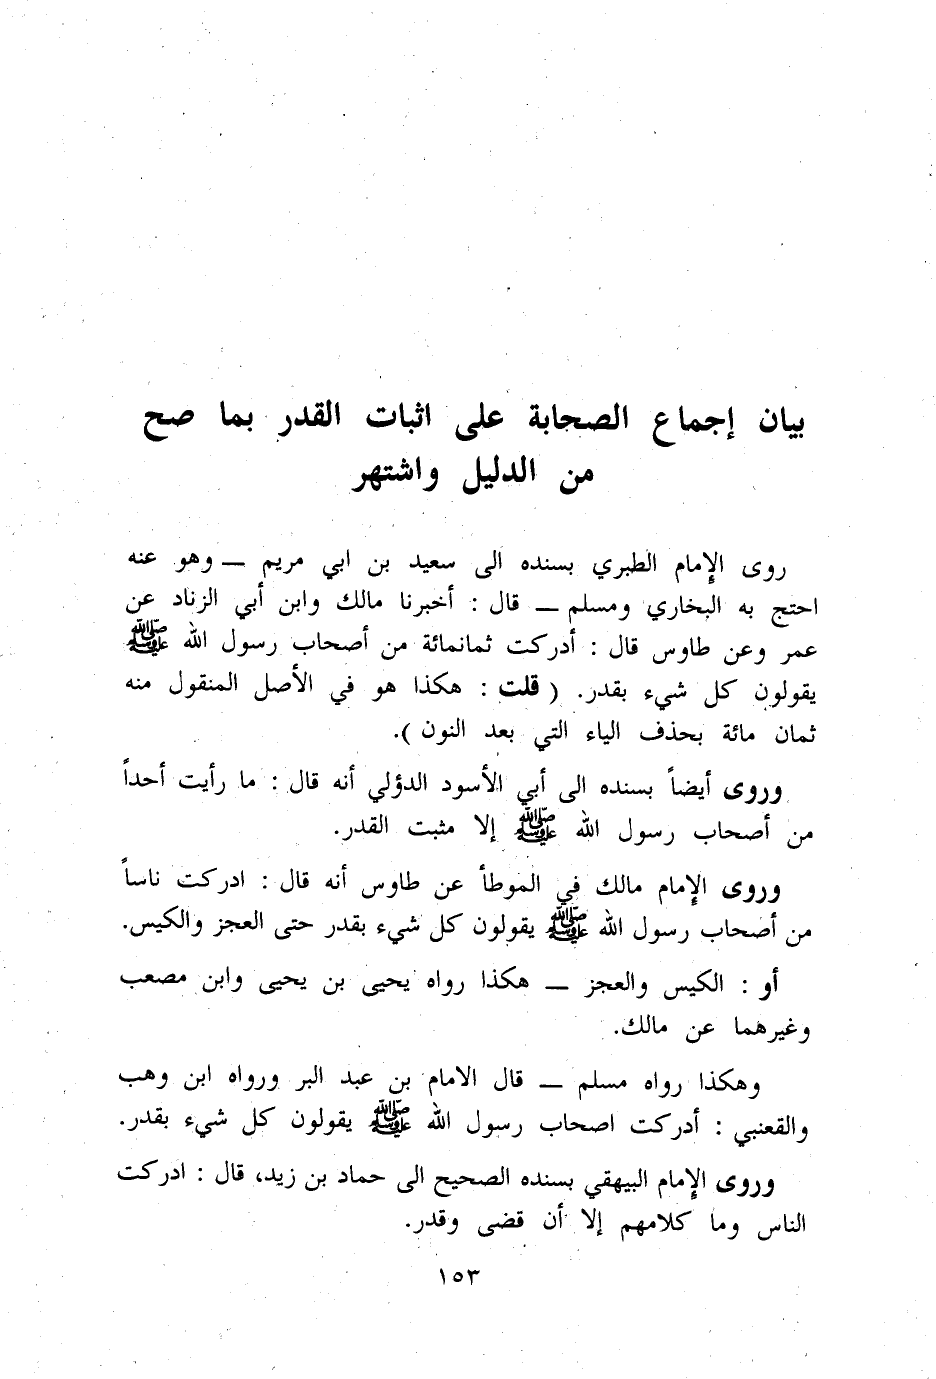 بيان إجماع الصحابة على اثبات القدر بما صح
من الدليل واشتهر
روى الإمام الطبري بسنده الى سعيد بن ابي مريم — وهو عنه
احتج به البخاري ومسلم — قال : أخبرنا مالك وابن أبي الزناد عن
عمر وعن طاوس قال : أدركت ثمانمائة من أصحاب رسول الله ﷺ
يقولون كل شيء بقدر. ( قلت : هكذا هو في الأصل المنقول منه
ثمان مائة بحذف الياء التي بعد النون ).
وروى أيضاً بسنده الى أبي الأسود الدؤلي أنه قال : ما رأيت أحداً
من أصحاب رسول الله ﷺ إلا مثبت القدر.
وروى الإمام مالك في الموطأ عن طاوس أنه قال : ادركت ناساً
من أصحاب رسول الله ﷺ يقولون كل شيء بقدر حتى العجز والكيس.
أو : الكيس والعجز — هكذا رواه يحيى بن يحيى وابن مصعب
وغيرهما عن مالك.
وهكذا رواه مسلم — قال الامام بن عبد البر ورواه ابن وهب
والقعنبي : أدركت اصحاب رسول الله ﷺ يقولون كل شيء بقدر.
وروى الإمام البيهقي بسنده الصحيح الى حماد بن زيد، قال : ادركت
الناس وما كلامهم إلا أن قضى وقدر.
١٥٣